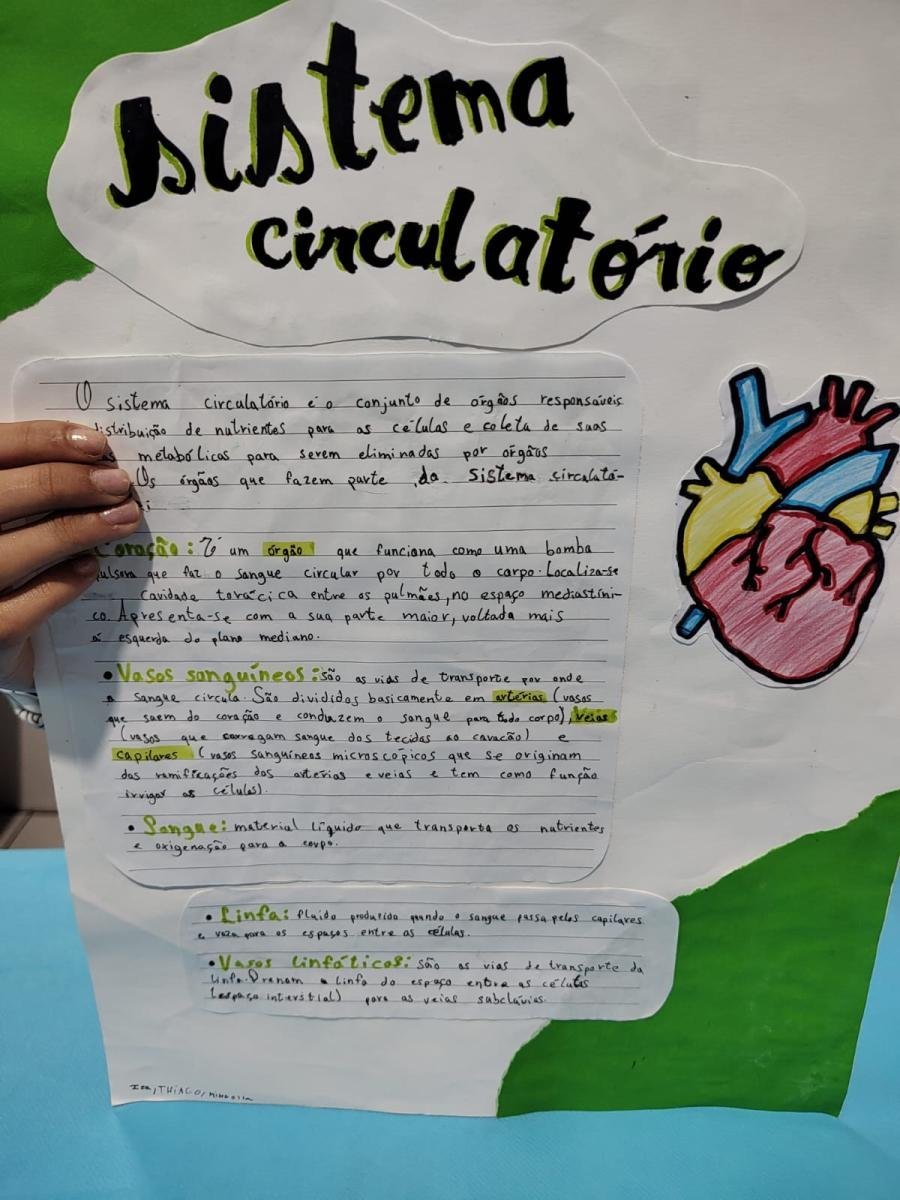 sistema
circulatório
O sistema circulatório é o conjunto de orgãos responsáveis
distribuição de nutrientes para as células e coleta de suas
metabólicas para serem eliminadas por órgãos
Os órgãos que fazem parte do sistema circulató-
Coração: É um órgão que funciona como uma bomba
pulsora que faz o sangue circular por todo o corpo. Localiza-se
cavidade torácica entre os pulmões, no espaço mediastíni-
co. Apresenta-se com a sua parte maior, voltada mais
á esquerda do plano mediano.
• Vasos sanguíneos: são as vias de transporte por onde
o sangue circula. São divididos basicamente em artérias (vasos
que saem do coração e conduzem o sangue para todo corpo), veias
(vasos que carregam sangue dos tecidas ao cavacão) e
capilares (vasos sanguíneos microscópicos que se originam
das ramificações dos arterias e veias e tem como função
irrigar as células).
• Sangue: material líquido que transporta os nutrientes
e oxigenação para o corpo.
• Linfa: fluido produzido quando o sangue passa pelos capilares
e vaza para os espaços entre as células.
• Vasos linfáticos: são as vias de transporte da
linfa. Drenam a linfa do espaço entre as células
(espaço interstial) para as veias subclávias.
THIAGO,